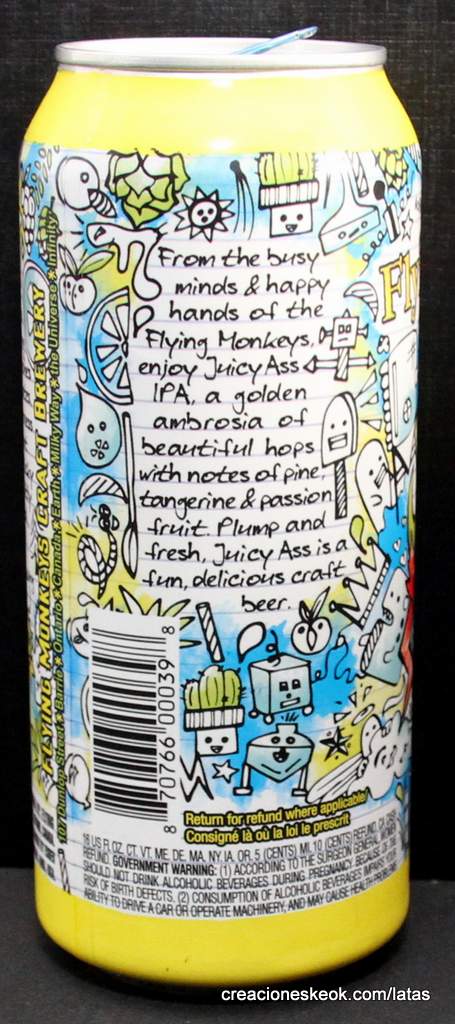 From the busy
minds & happy
hands of the
Flying Monkeys,
enjoy Juicy Ass
IPA, a golden
ambrosia of
beautiful hops
with notes of pine,
tangerine & passion
fruit. Plump and
fresh, Juicy Ass is a
fun, delicious craft
beer.
Fly
FLYING MONKEYS CRAFT BREWERY
107 Dunlop Street ★ Barrie ★ Ontario ★ Canada ★ Earth ★ Milky Way ★ the Universe ★ Infinity
8 70766 00039 8
Return for refund where applicable/
Consigné là où la loi le prescrit
16 US FL OZ. CT, VT, ME, DE, MA, NY, IA, OR, 5 (CENTS) MI, 10 (CENTS) REFUND, CA
REFUND. GOVERNMENT WARNING: (1) ACCORDING TO THE SURGEON GENERAL, WOMEN
SHOULD NOT DRINK ALCOHOLIC BEVERAGES DURING PREGNANCY BECAUSE OF THE
RISK OF BIRTH DEFECTS. (2) CONSUMPTION OF ALCOHOLIC BEVERAGES IMPAIRS YOUR
ABILITY TO DRIVE A CAR OR OPERATE MACHINERY, AND MAY CAUSE HEALTH
creacioneskeok.com/latas